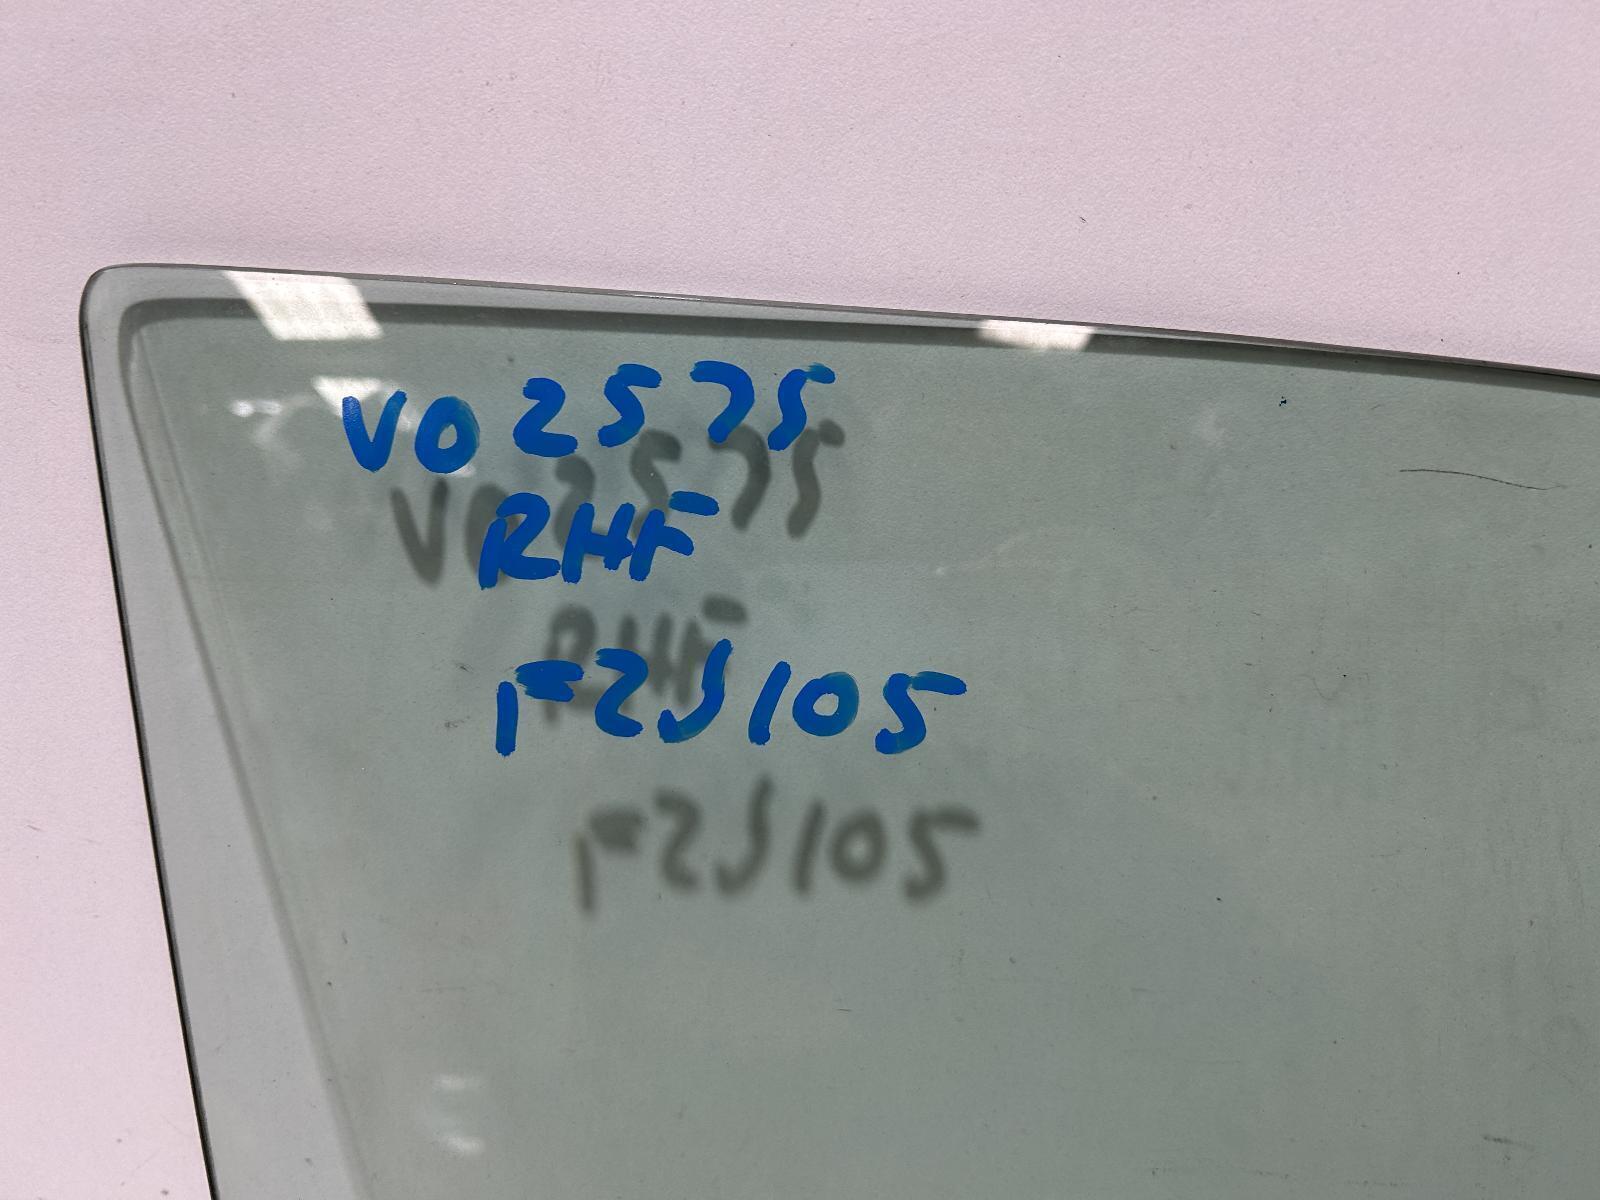 VO2575
RHF
F2J105